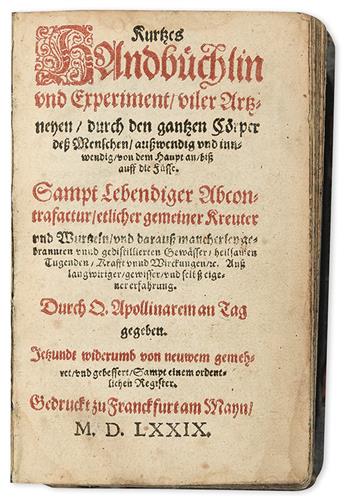 Kurtzes
HAndbüchlin
vnd Experiment/ viler Artz-
neyen/ durch den gantzen Cörper
deß Menschen/ außwendig vnd inn-
wendig/ von dem Haupt an/ biß
auff die Füsse.
Sampt Lebendiger Abcon-
trafactur/ etlicher gemeiner Kreuter
vnd Wurtzeln/ vnd darauß mancherley ge-
brannten vnnd gedistillierten Gewässer/ heilsamen
Tugenden/ Krafft vnnd Wirckungen/ ec. Auß
langwiriger/ gewisser/ vnd selbß eige-
ner erfahrung.
Durch Q. Apollinarem an Tag
gegeben.
Jetzundt widerumb von neuwem gemeh-
ret/ vnd gebessert/ Sampt einem ordent-
lichen Register.
Gedruckt zu Franckfurt am Mayn/
M. D. LXXIX.